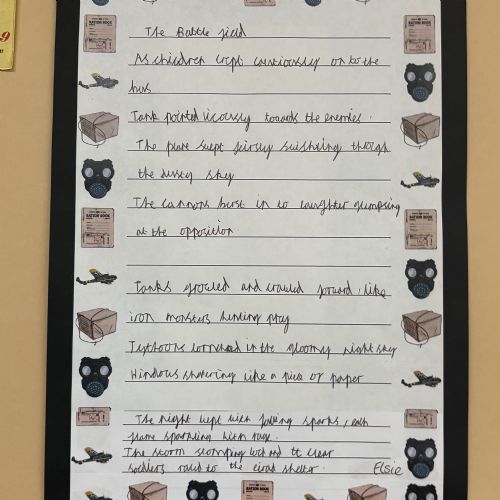 The Battle field
As children crept cautiously on to the
bus
Tank pointed viciously towards the enemies.
The plane swept fiersly swishing through
the dusty sky
The cannons burst in to laughter glimpsing
at the opposition
Tanks growled and crawled forward, like
iron monsters hunting pray
in the gloomy night sky
Windows shattering like a piece of paper
The night wept with falling sparks, each
flame sparkling with rage.
The storm stomping
soldiers raced to the shelter.
Elsie
RATION BOOK
RATION BOOK
RATION BOOK
RATION BOOK
9